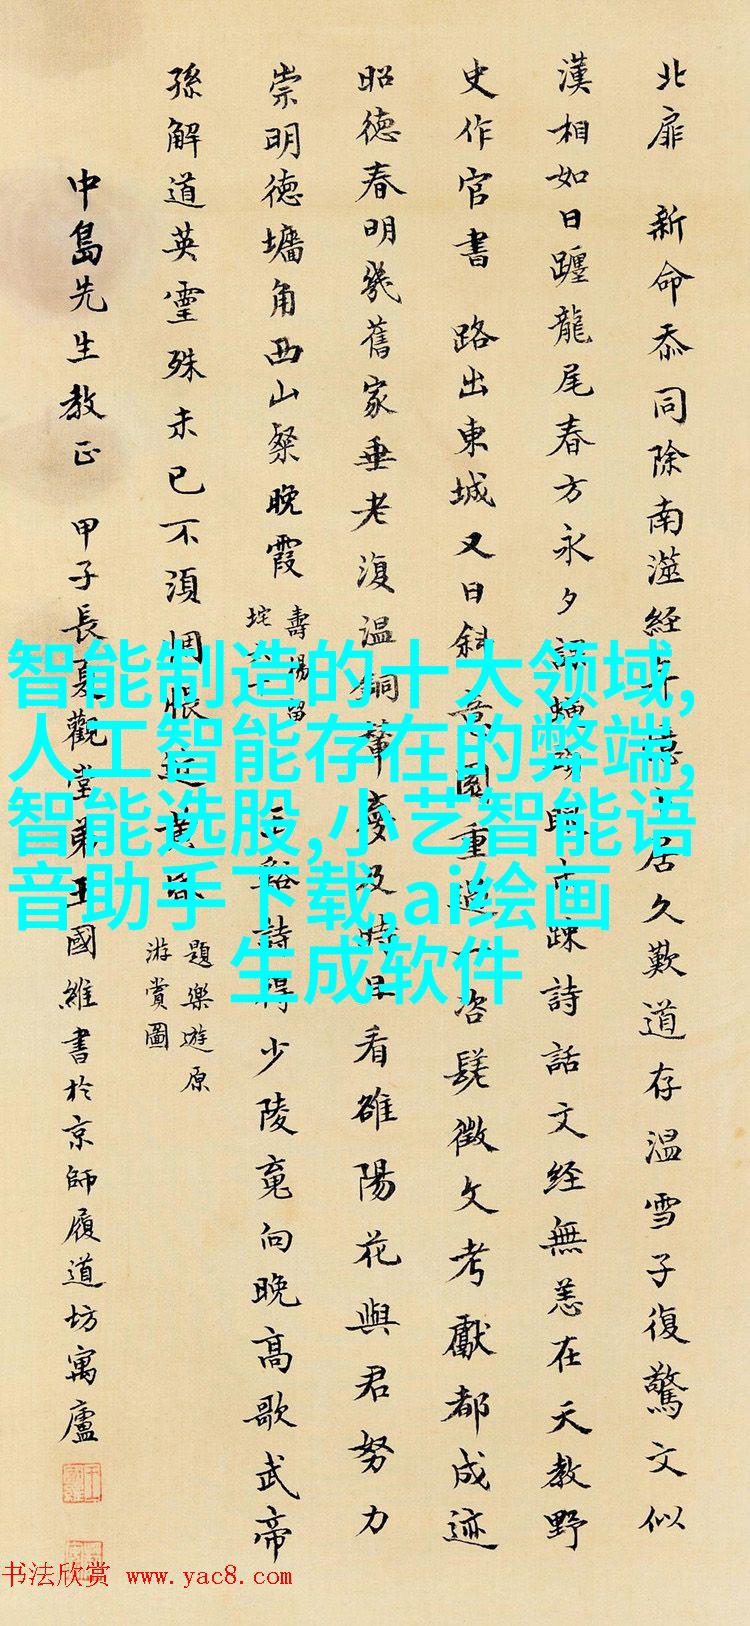 北扉 新命忝同除南澨経居久歎道存温雪子復驚文似
漢相如日躔龍尾春方永夕疎詩話文経無恙在天教野
史作官書 路出東城又日斜意園重過一咨嗟徵文考獻都成迹
昭德春明幾舊家垂老復温銅輦夢及時且看雒陽花與君努力
崇明德墉角西山粲晚霞
壽楊留
垞六十
玉谿詩得少陵竟向晚高歌武帝
孫解道英靈殊未已不須惆悵近黃昏
題樂遊原
游賞圖
中島先生教正 甲子長夏觀堂弟王國維書於京師履道坊寓廬
智能制造的十大领域,
人工智能存在的弊端,
智能选股,小艺智能语
音助手下载,ai绘画
生成软件
书法欣赏 www.yac8.com